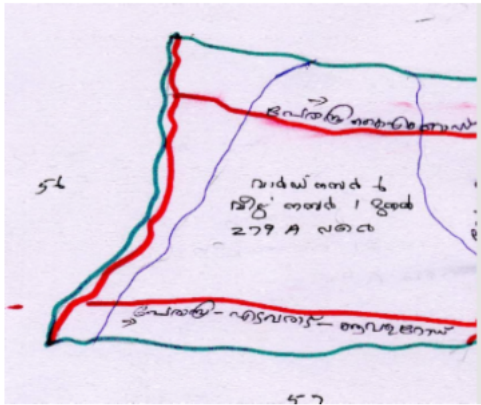 പേരാമ്പ്ര
56
വാർഡ് നമ്പർ 6
വീട്ട് നമ്പർ 1 മുതൽ
279 A വരെ
പേരാമ്പ്ര - എടവരാട് - ആവള റോഡ്
57